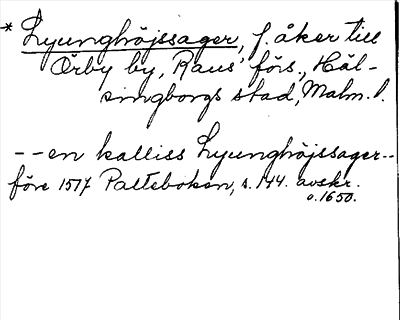 * Lyunghöjssager, f. åker till
Örby by, Raus' förs., Häl-
singborgs stad, Malm. l.
-- en kalliss Lyunghöjssager --
före 1517 Palteboken, s. 144. avskr.
o. 1650.